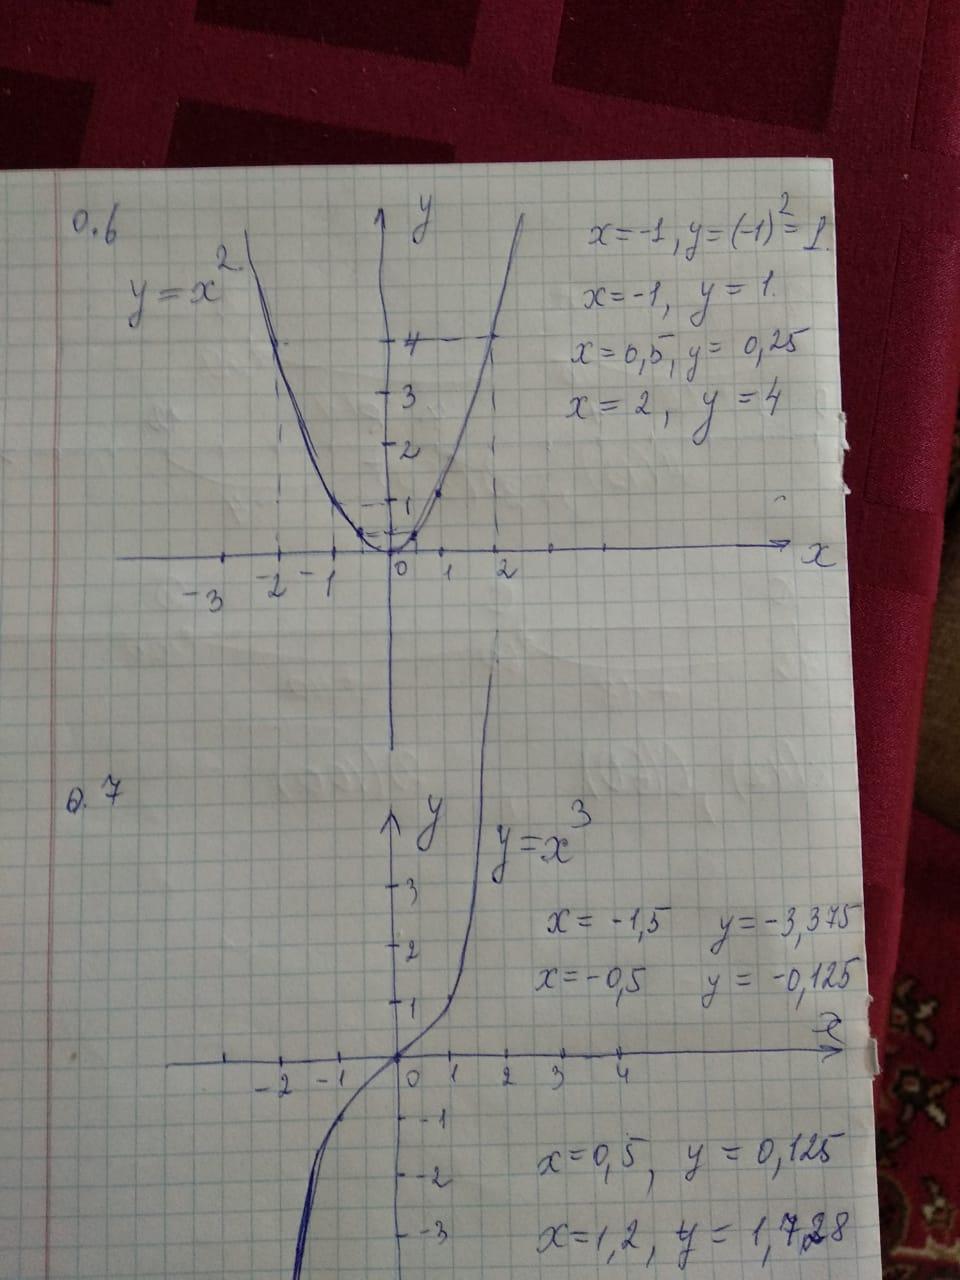 0.6
y
x=-1, y=(-1)²=1.
y=x²
x=-1, y=1.
x=0,5, y=0,25
x=2, y=4
4
3
2
1
-3 -2 -1 0 1 2 x
0.7
y
y=x³
3
x=-1,5 y=-3,375
2
x=-0,5 y=-0,125
1
-2 -1 0 1 2 3 4
-1
x=0,5, y=0,125
-2
-3
x=1,2, y=1,728